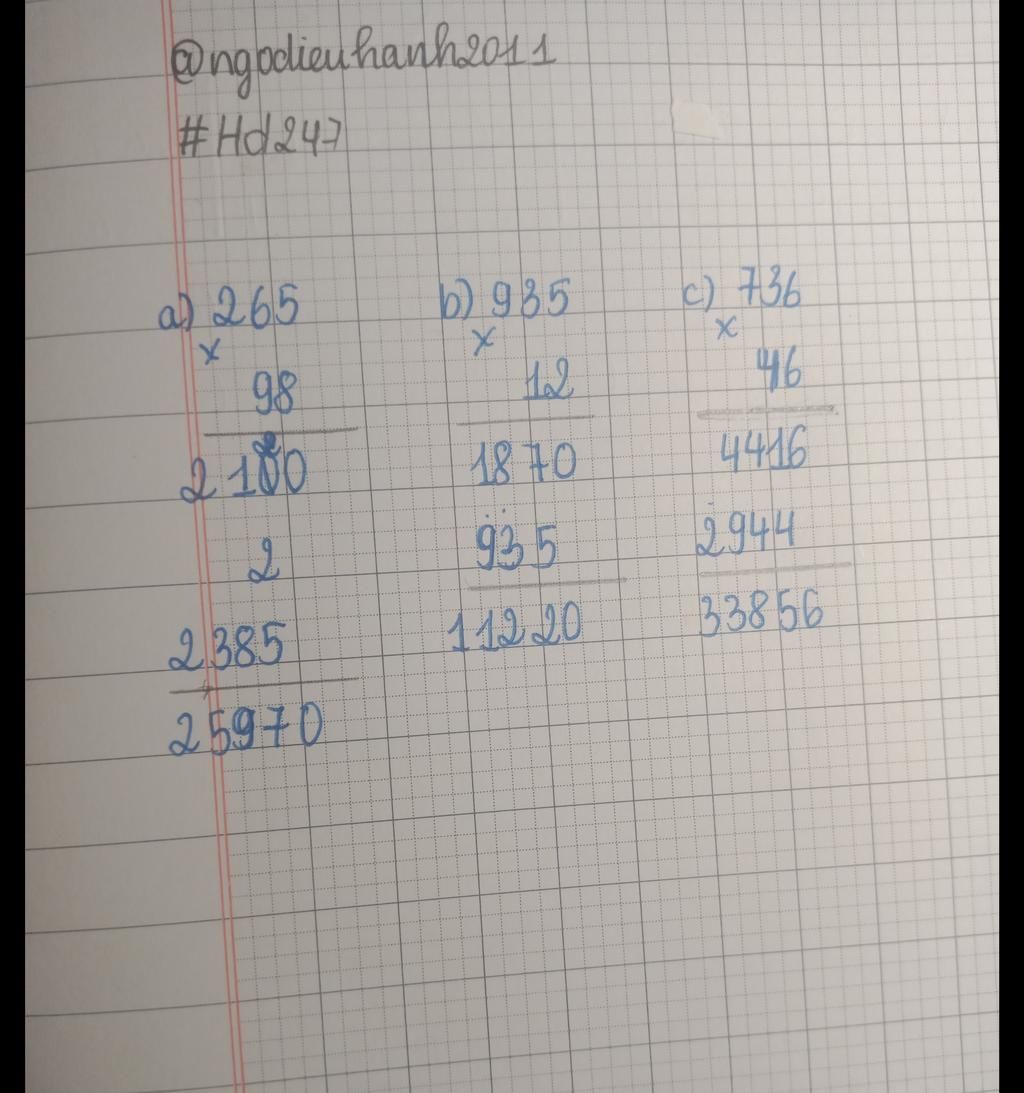 @ngodieuhanh2011
#Hd247
a) 265 b) 935 c) 736
x x x
98 12 46
2120 1870 4416
2 935 2944
2385 11220 33856
25970